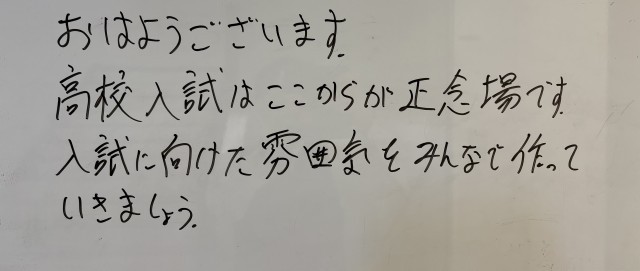 おはようございます.
高校入試はここからが正念場です.
入試に向けた雰囲気をみんなで作って
いきましょう.